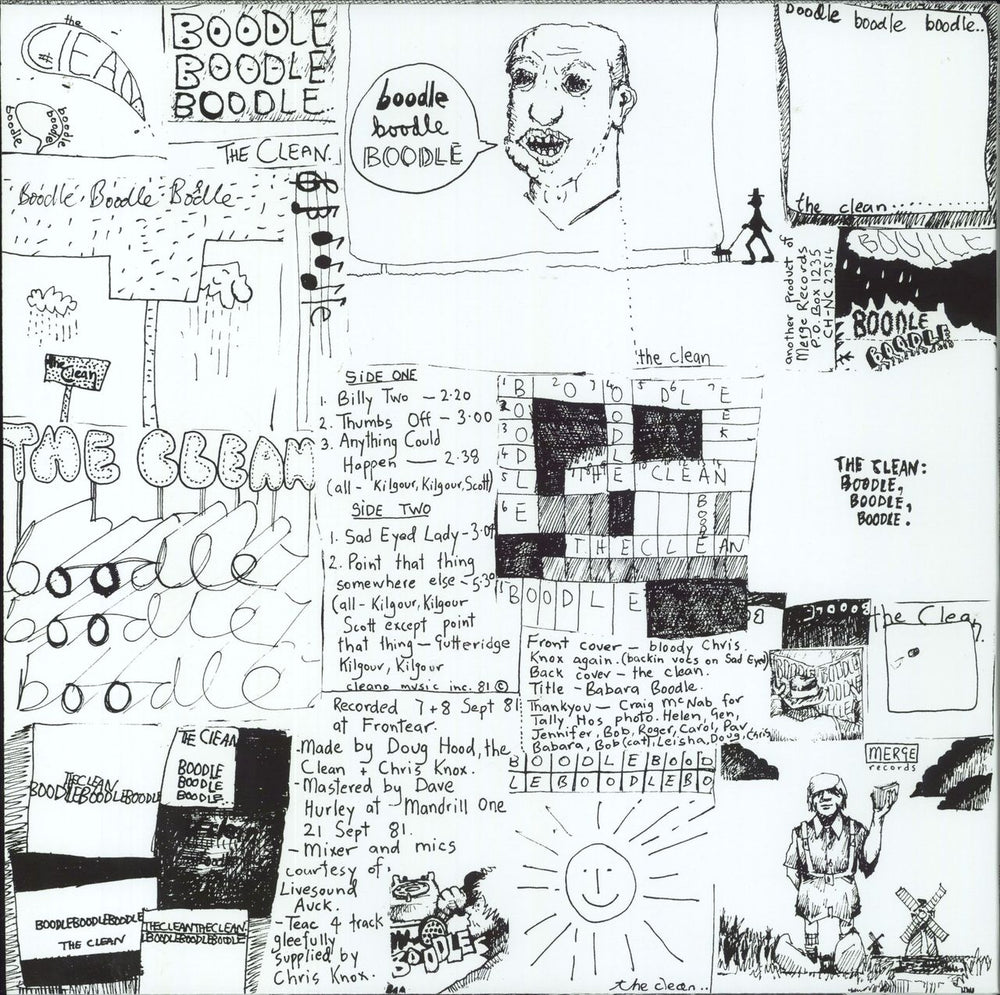 the
CLEAN
boodle
boodle
boodle
BOODLE
BOODLE
BOODLE.
THE CLEAN.
boodle
boodle
BOODLE
Doodle boodle boodle..
the clean
Boodle. Boodle Bodle
the clean
another Product of
Merge Records
P.O. Box 1235
CH-NC 27514
BOODLE
BOODLE
BOODLE
the Clean
THE CLEAN
boodle
boodle
boodle
SIDE ONE
1. Billy Two - 2.20
2. Thumbs Off - 3.00
3. Anything Could
Happen - 2.38
(all - Kilgour, Kilgour, Scott)
SIDE TWO
1. Sad Eyed Lady - 3.04
2. Point that thing
somewhere else - 5.30
(all - Kilgour, Kilgour
Scott except point
that thing - gutteridge
Kilgour, Kilgour
cleano music inc. 81 ©
1 B 2 O 3 4 O 5 D 6 L 7 E
2 O O E
3 O D K
4 D L
5 L THE CLEAN
6 E BOOD
THE CLEAN
BOODLE
THE CLEAN:
BOODLE,
BOODLE,
BOODLE.
the Clean.
Front cover - bloody Chris
Knox again. (backin vocs on Sad Eyed)
Back cover - the clean.
Title - Babara Boodle.
Thankyou - Craig McNab for
Tally Hos photo. Helen, Gen,
Jennifer, Bob, Roger, Carol, Pav,
Babara, Bob (cat), Leisha, Doug, Chris
BOODLEBOOD
LEBOODLEBO
Recorded 7+8 Sept 81
at Frontear.
-Made by Doug Hood, the
Clean + Chris Knox.
-Mastered by Dave
Hurley at Mandrill One
21 Sept 81.
-Mixer and mics
courtesy of
Livesound
Auck.
-Teac 4 track
gleefully
supplied by
Chris Knox.
THE CLEAN
BOODLEBOODLEBOODLE
THE CLEAN
BOODLE
BOODLE
BOODLE
BOODLEBOODLEBOODLE
THE CLEAN
THECLEANTHECLEAN
BOODLEBOODLEBOODLE
BOODLES
the clean..
MERGE
records